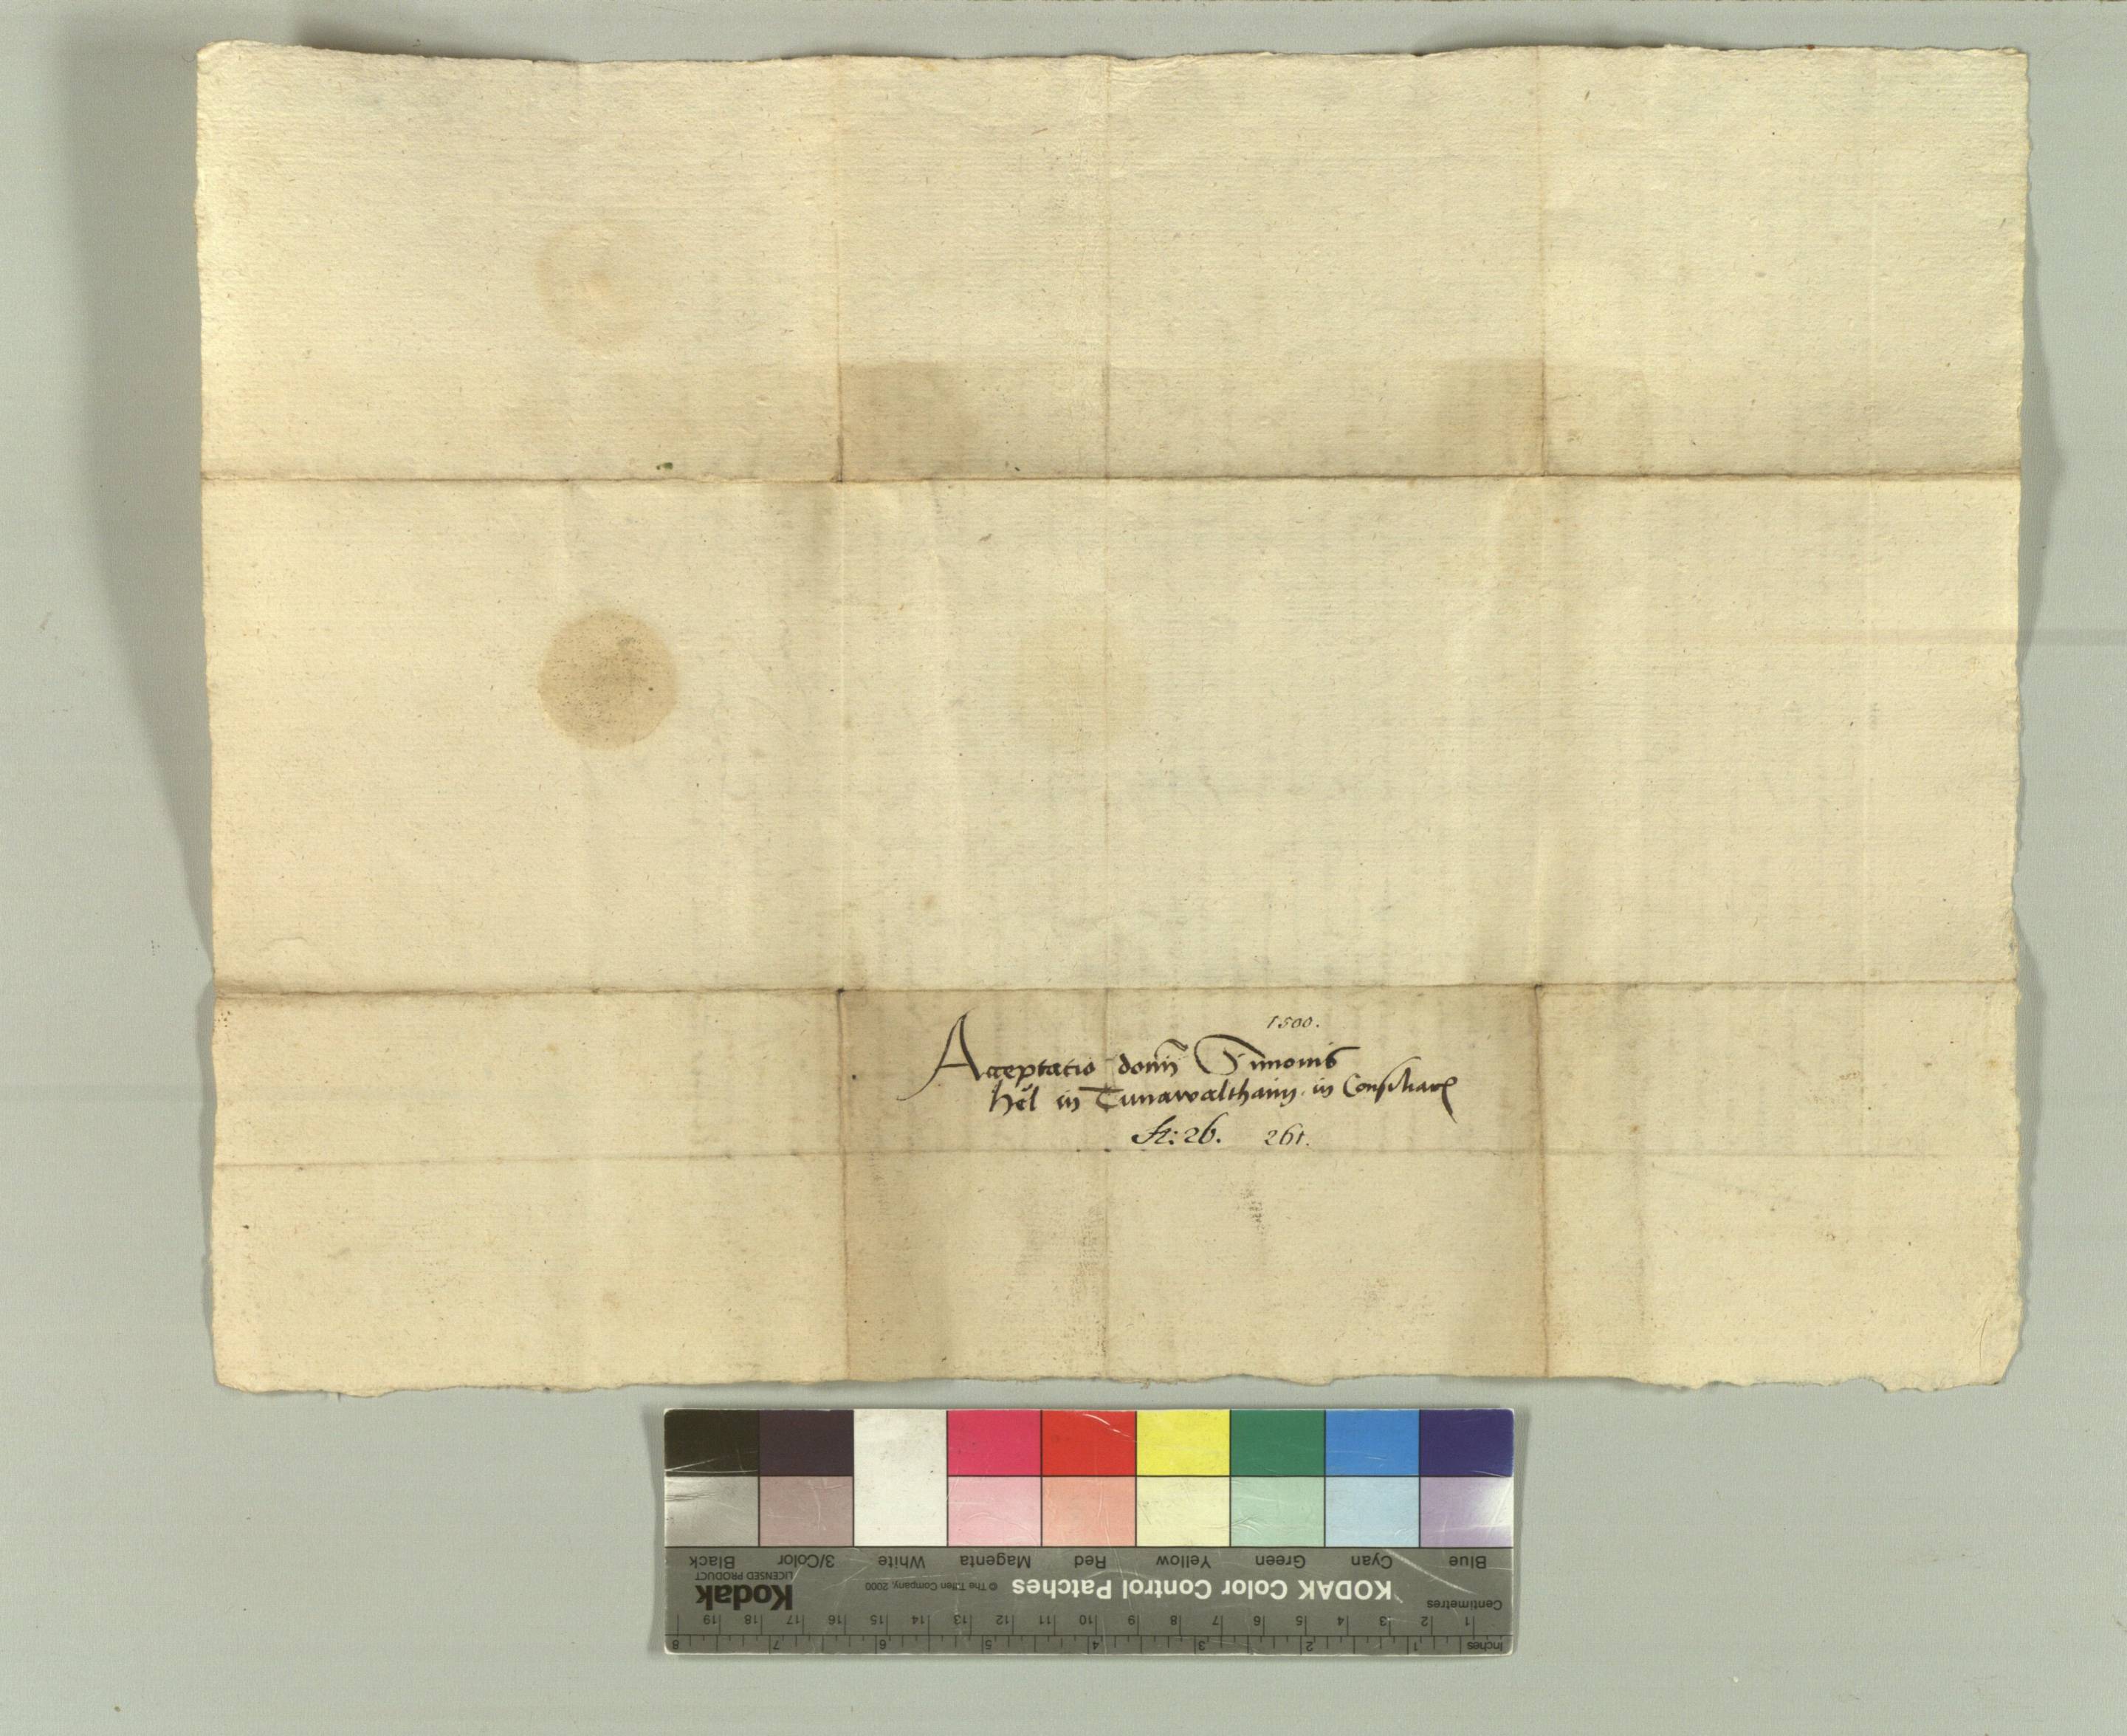 1500.
Acceptatio domi Simonis
hel in Tunawalthaim in Consiliarū
St: 26. 261.
Black 3/Color White Magenta Red Yellow Green Cyan Blue
Kodak
LICENSED PRODUCT
KODAK Color Control Patches
© The Tiffen Company, 2000
Centimetres 1 2 3 4 5 6 7 8 9 10 11 12 13 14 15 16 17 18 19
Inches 1 2 3 4 5 6 7 8